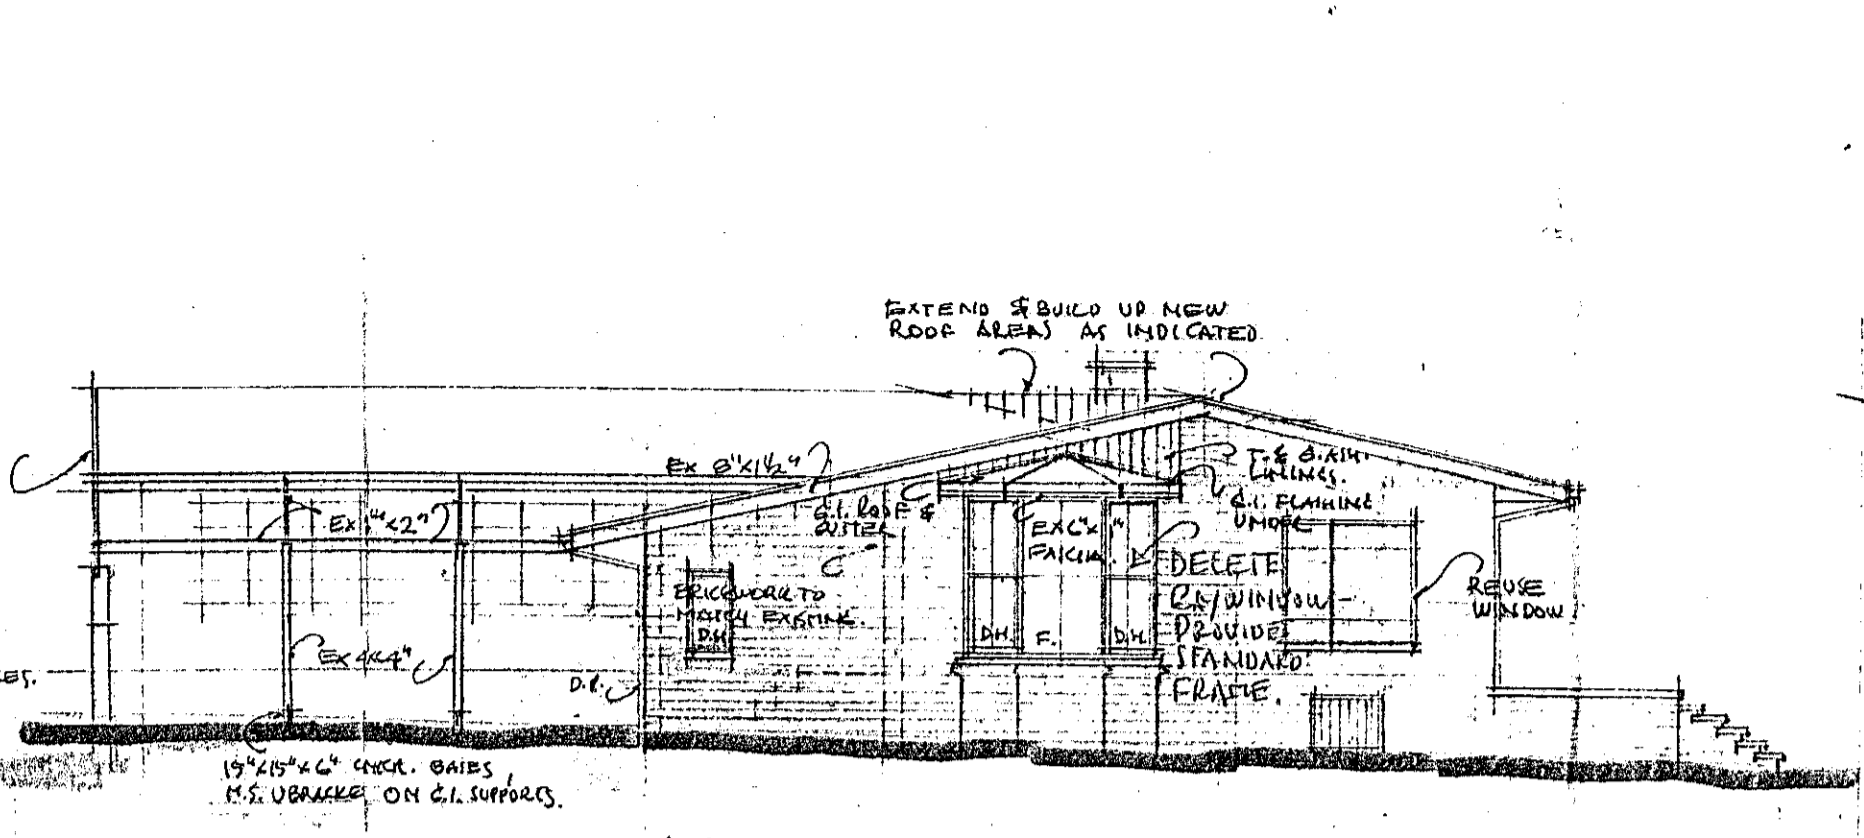 EXTEND & BUILD UP NEW
ROOF AREAS AS INDICATED
EX 8"x1½"
T. & G. ASH
LININGS.
G.I. FLASHING
UNDER
G.I. ROOF &
GUTTER
EX 6"x1"
FASCIA.
EX 1"x2"
DELETE
BAY WINDOW -
PROVIDE
STANDARD
FRAME.
REUSE
WINDOW
BRICKWORK TO
MATCH EXISTING.
D.H.
D.H.
F.
D.H.
EX 4x4"
D.P.
15"x15"x6" CONCR. BASES,
M.S. ON G.I. SUPPORTS.